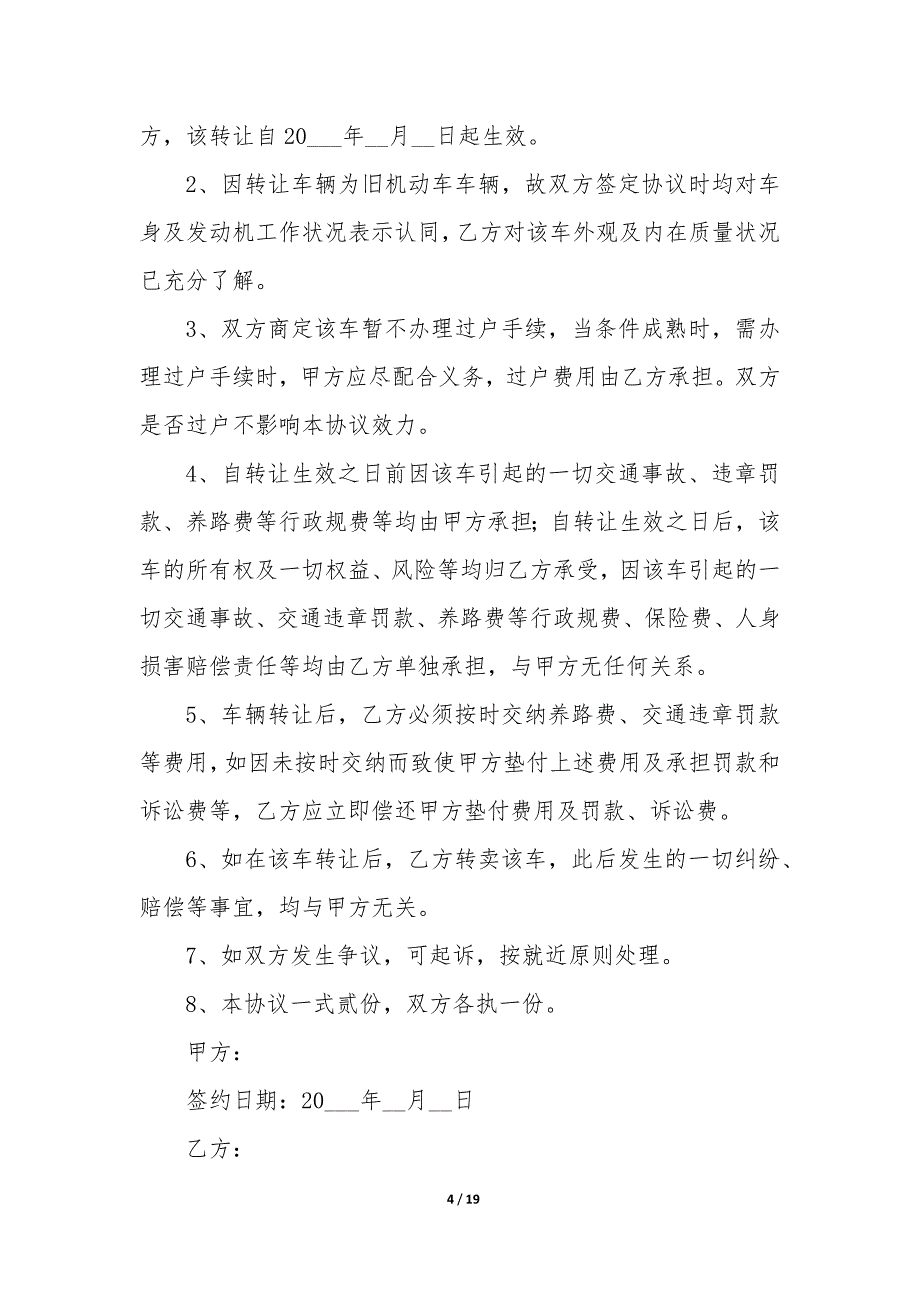 方，该转让自 20___年__月__日起生效。
2、因转让车辆为旧机动车车辆，故双方签定协议时均对车
身及发动机工作状况表示认同，乙方对该车外观及内在质量状况
已充分了解。
3、双方商定该车暂不办理过户手续，当条件成熟时，需办
理过户手续时，甲方应尽配合义务，过户费用由乙方承担。双方
是否过户不影响本协议效力。
4、自转让生效之日前因该车引起的一切交通事故、违章罚
款、养路费等行政规费等均由甲方承担；自转让生效之日后，该
车的所有权及一切权益、风险等均归乙方承受，因该车引起的一
切交通事故、交通违章罚款、养路费等行政规费、保险费、人身
损害赔偿责任等均由乙方单独承担，与甲方无任何关系。
5、车辆转让后，乙方必须按时交纳养路费、交通违章罚款
等费用，如因未按时交纳而致使甲方垫付上述费用及承担罚款和
诉讼费等，乙方应立即偿还甲方垫付费用及罚款、诉讼费。
6、如在该车转让后，乙方转卖该车，此后发生的一切纠纷、
赔偿等事宜，均与甲方无关。
7、如双方发生争议，可起诉，按就近原则处理。
8、本协议一式贰份，双方各执一份。
甲方：
签约日期：20___年__月__日
乙方：
4 / 19